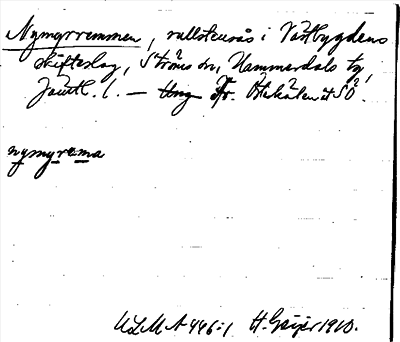 Nymyrremmen, rullstensås i Västbygdens
skifteslag, Ströms sn, Hammerdals tg,
Jämtl. l. — Ung fr. Österåsen åt SÖ.
nymyrema
ULMA 446:1 H. Geijer 1910.